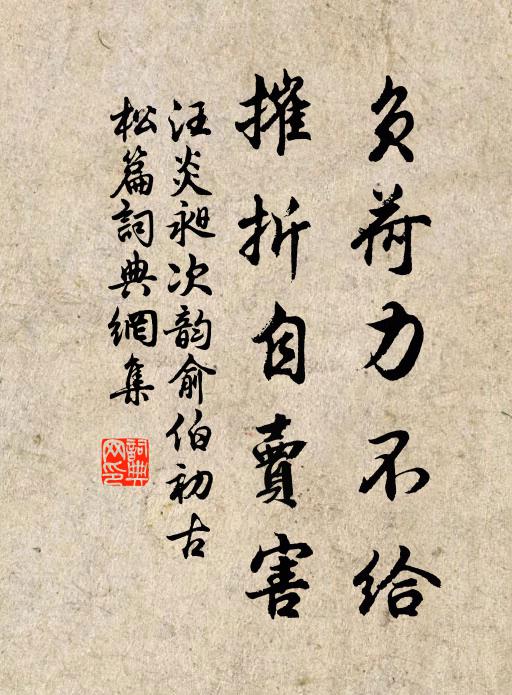 负荷力不给
摧折自賣害
汪炎昶次韵俞伯初古
松篇詞典網集
詞典网印